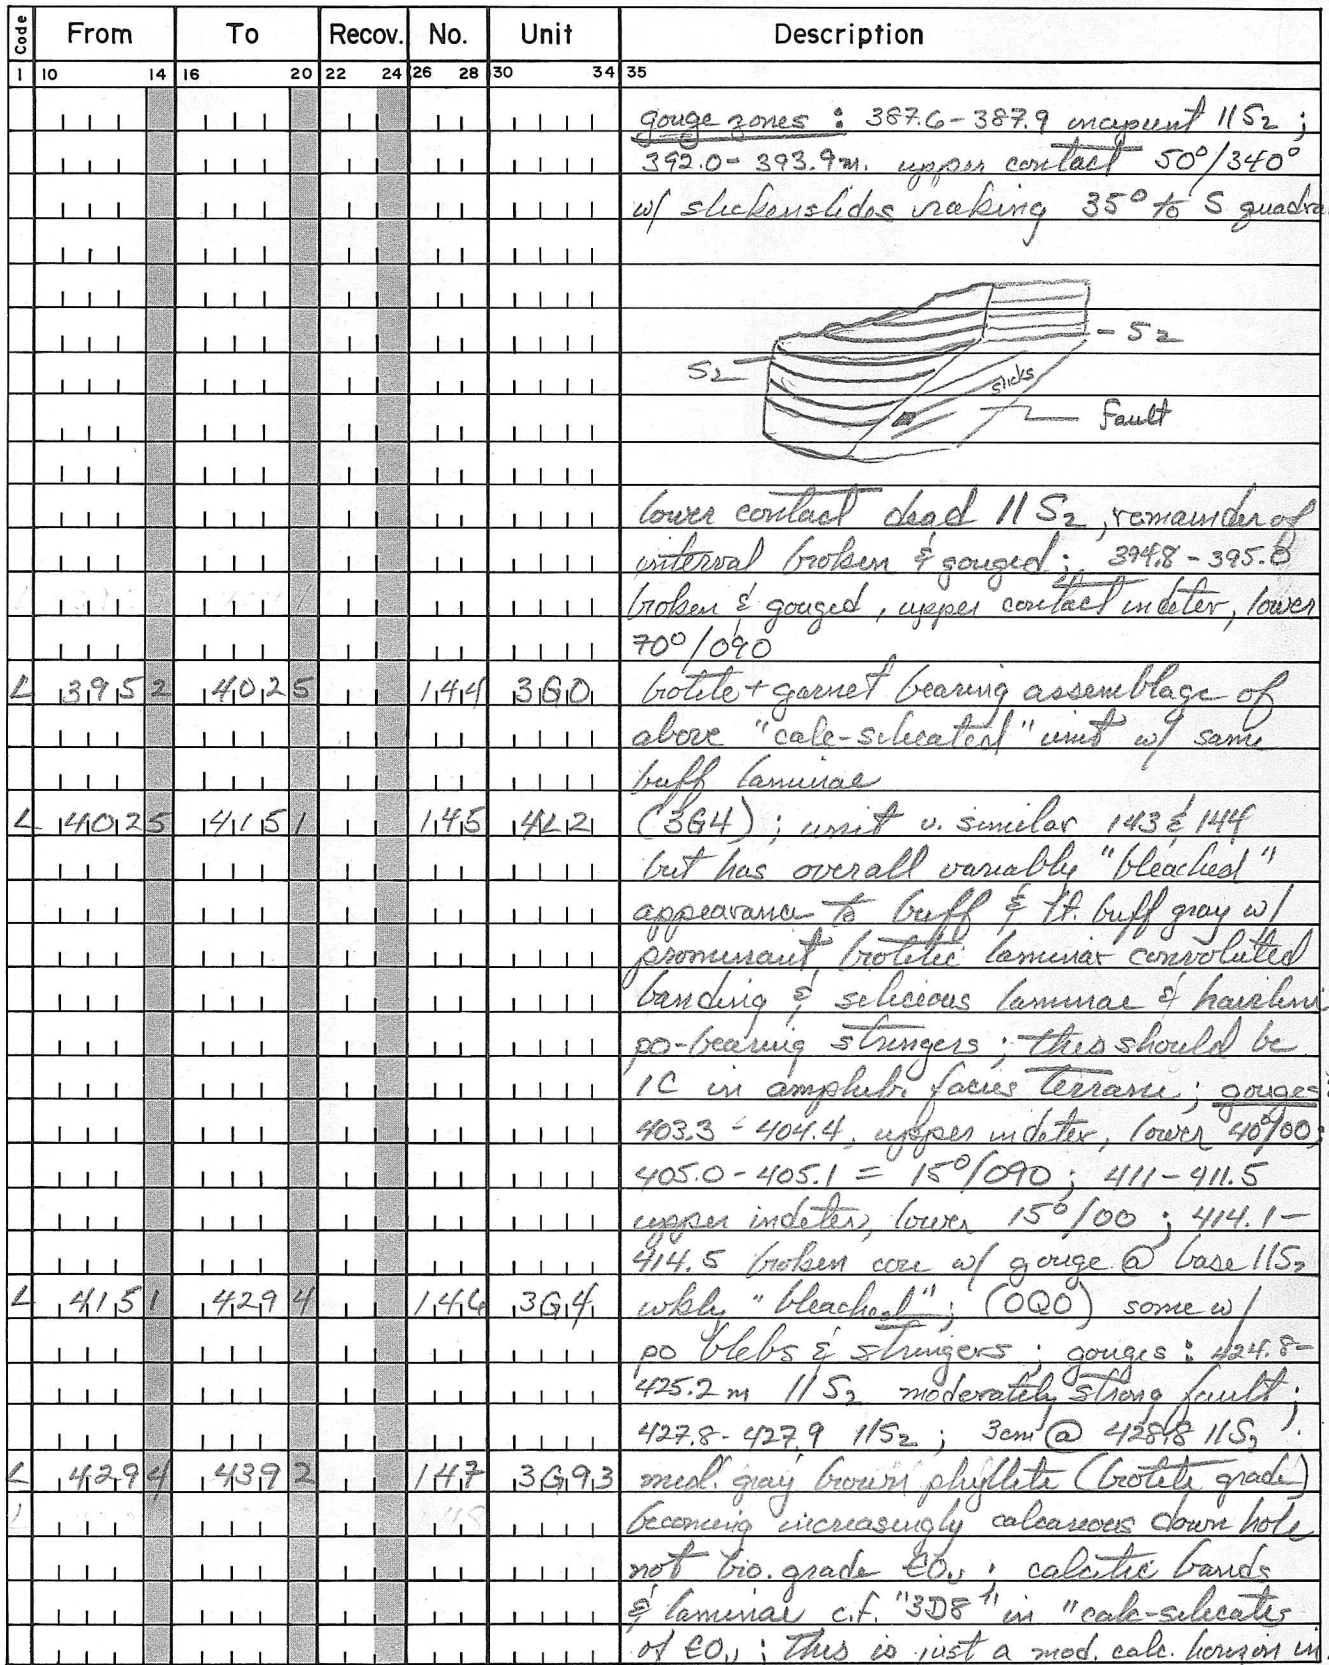 Code From To Recov. No. Unit Description
1 10 14 16 20 22 24 26 28 30 34 35
gouge zones : 387.6-387.9 incipient 11S2 ;
392.0-393.9m. upper contact 50°/340°
w/ slickenslides raking 35° to S quadra
S2
S2
slicks
Fault
lower contact dead 11 S2, remainder of
interval broken & gouged ; 394.8-395.0
broken & gouged, upper contact indeter, lower
70°/090
L 3952 4025 144 3G0 biotite + garnet bearing assemblage of
above "calc-silicated" unit w/ same
buff laminae
L 4025 4151 145 4L2 (3G4) ; unit v. similar 143 & 144
but has overall variably "bleached"
appearance to buff & lt. buff gray w/
prominant biotitic laminar convoluted
banding & silicious laminae & hairline
po-bearing stringers ; this should be
1C in amphib. facies terrane ; gouges:
403.3-404.4, upper indeter, lower 40°/00;
405.0-405.1 = 15°/090 ; 411-411.5
upper indeter, lower 15°/00 ; 414.1-
414.5 broken core w/ gouge @ base 11S2
L 4151 4294 146 3G4 wkly "bleached" ; (0Q0) some w/
po blebs & stringers ; gouges : 424.8-
425.2 m 11S2 moderately strong fault ;
427.8-427.9 11S2 ; 3cm @ 428.8 11S2.
L 4294 4392 147 3G93 med. gray brown phyllite (biotite grade)
becoming increasingly calcareous down hole
not bio. grade ; calcitic bands
& laminae c.f. "3D8" in "calc-silicates
of ; this is just a mod. calc. horizon in